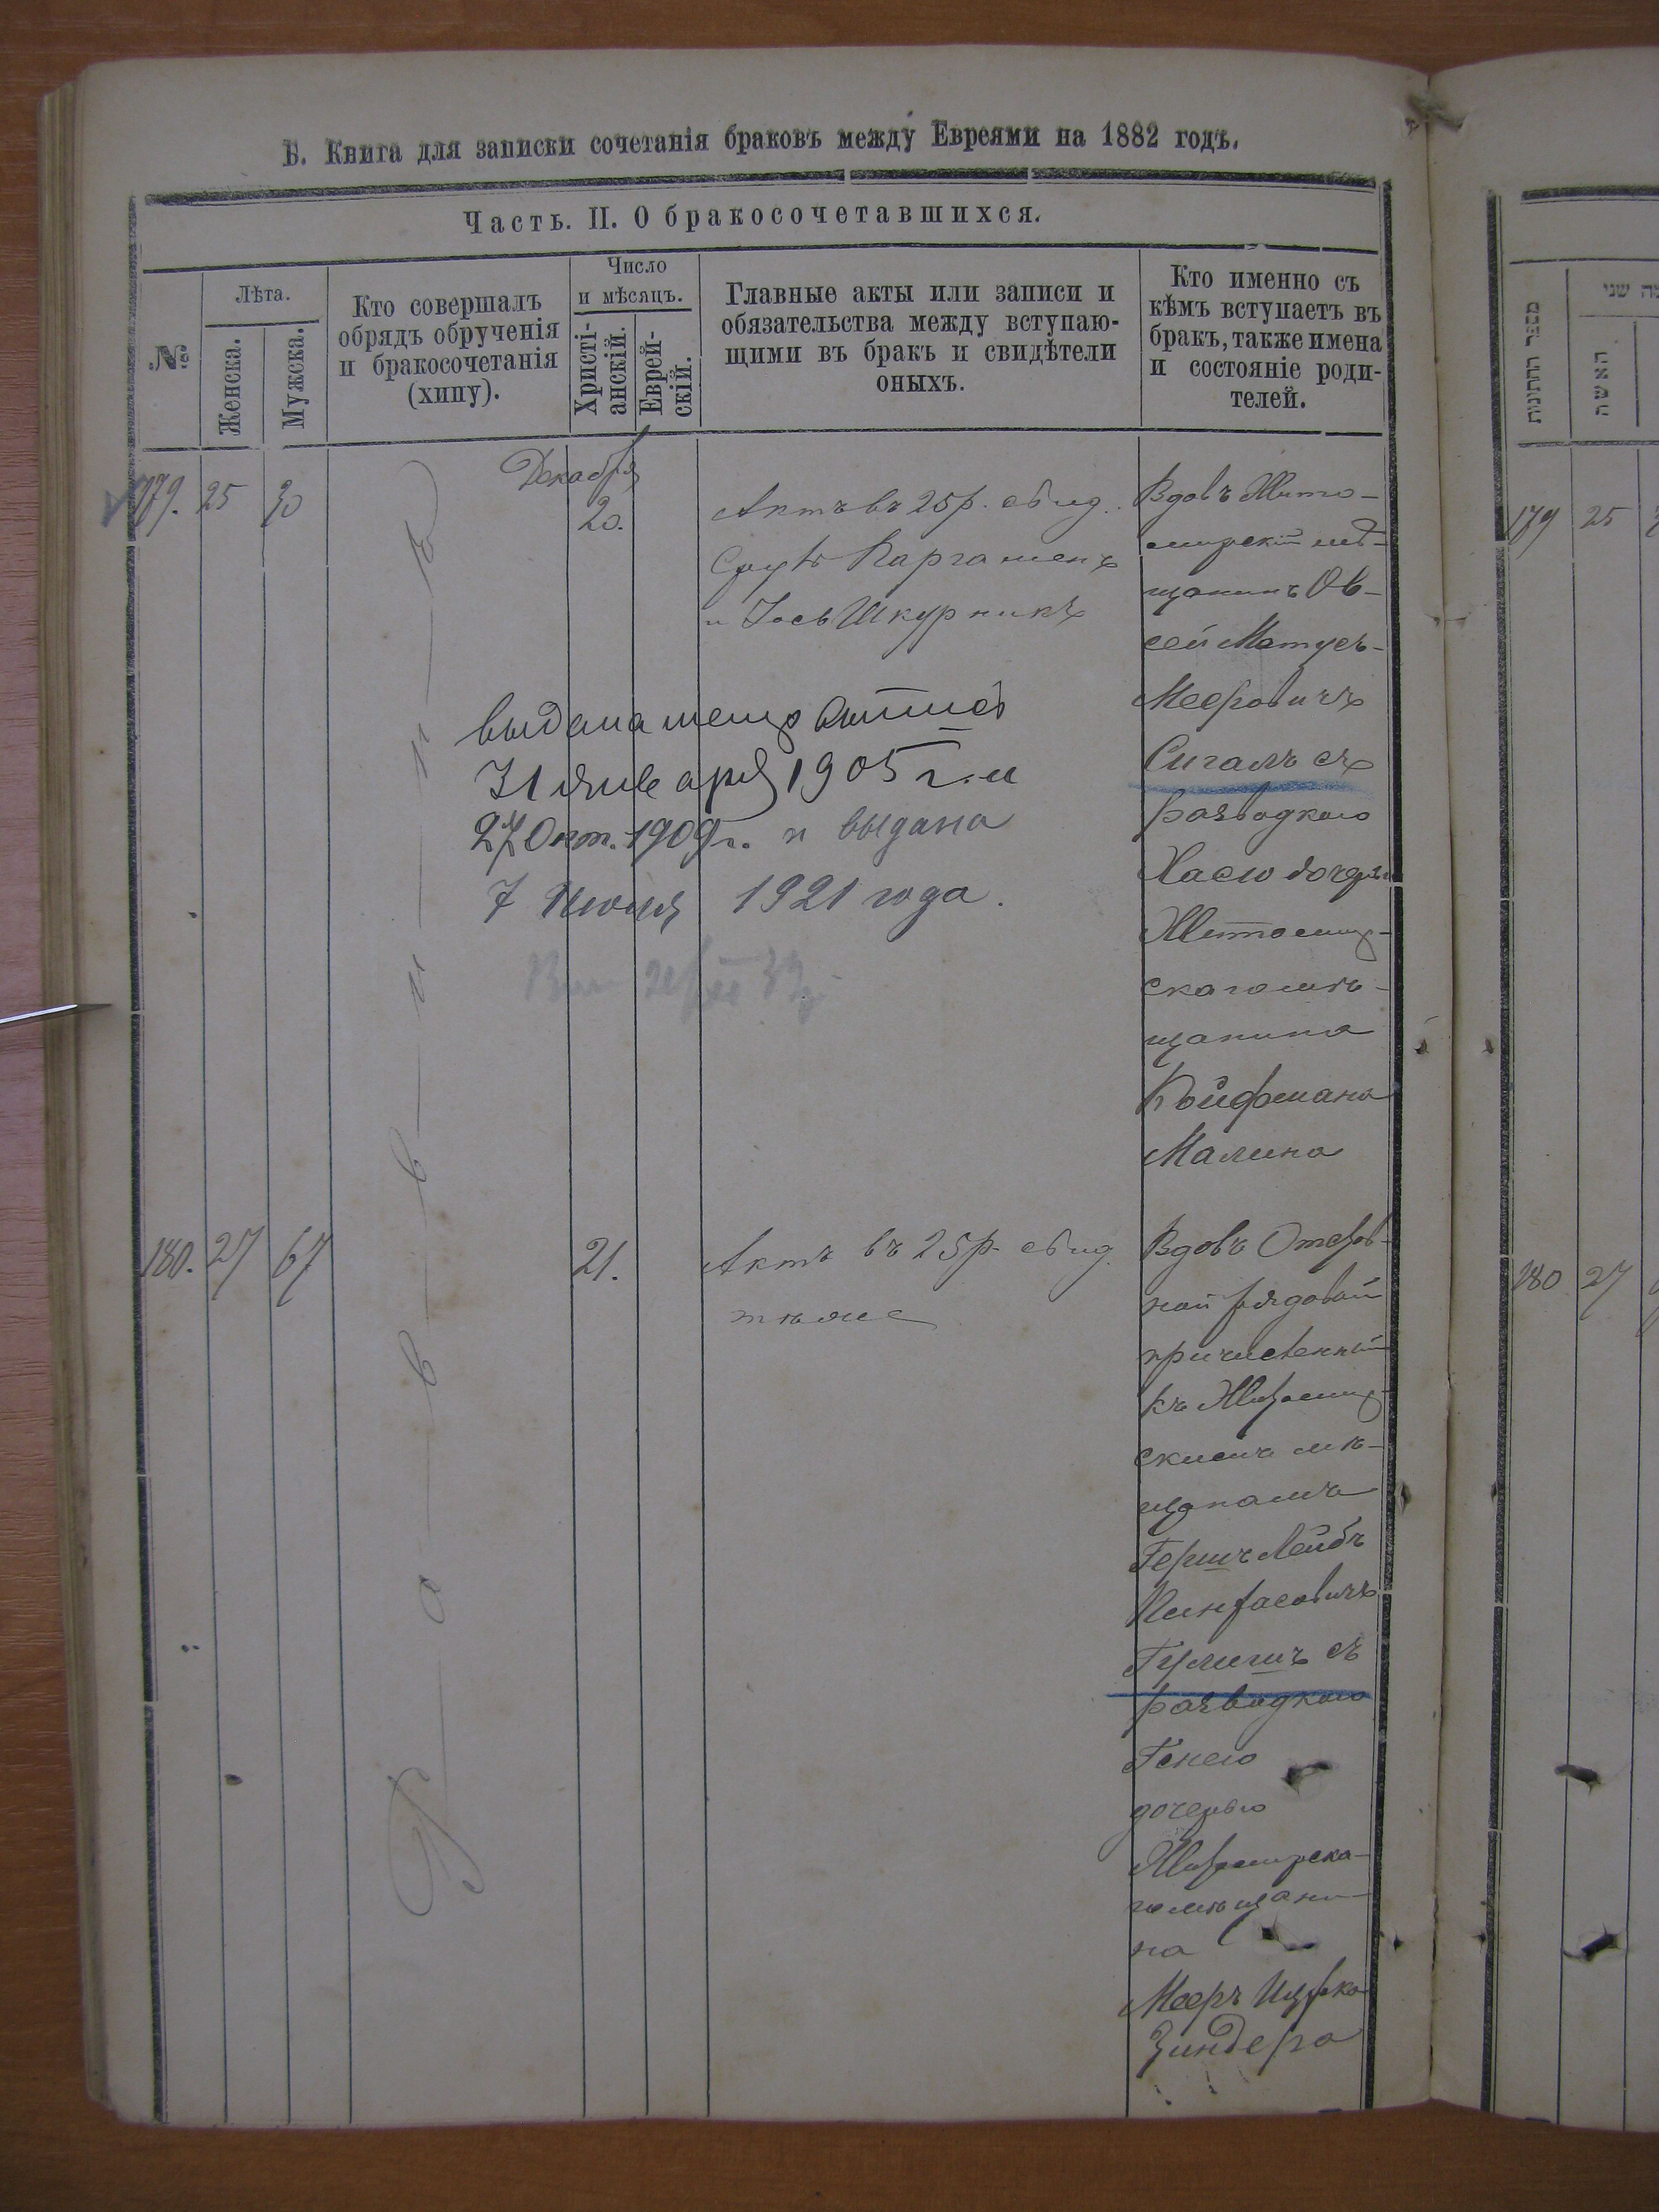 Б. Книга для записки сочетанія браковъ между Евреями на 1882 годъ.
Часть. II. О бракосочетавшихся.
№
Лѣта.
Женска.
Мужска.
Кто совершалъ
обрядъ обрученія
и бракосочетанія
(хипу).
Число
и мѣсяцъ.
Христі-
анскій.
Еврей-
скій.
Главные акты или записи и
обязательства между вступаю-
щими въ бракъ и свидѣтели
оныхъ.
Кто именно съ
кѣмъ вступаетъ въ
бракъ, также имена
и состояніе роди-
телей.
179. 25 30
Декабря
20.
Актъ въ 25 р. свид.
Сруль
и Іось Шкурникъ
Вдовъ Жито-
мирскій мѣ-
щанинъ Ов-
сей Матусъ-
Мееровичъ
Сигалъ съ
разводкою
Хасю дочерью
Житомир-
скаго мѣ-
щанина
Койфмана
Малина
выдана метр выпись
31 января 1905 г. и
27 Окт. 1909 г. и выдана
7 Июля 1921 года.
180. 27 67
21.
Актъ въ 25 р. свид.
тѣже
Вдовъ Отстав-
ной рядовой
причисленный
къ Житомир-
скимъ мѣ-
щанамъ
Гершъ Лейбъ
Пинхасовичъ
съ
разводкою
Генею
дочерью
Житомирска-
го мѣщани-
на
Мееръ Ицека
Зиндера
Раввинъ
מספר החתונות
האשה
שני
179 25
180 27